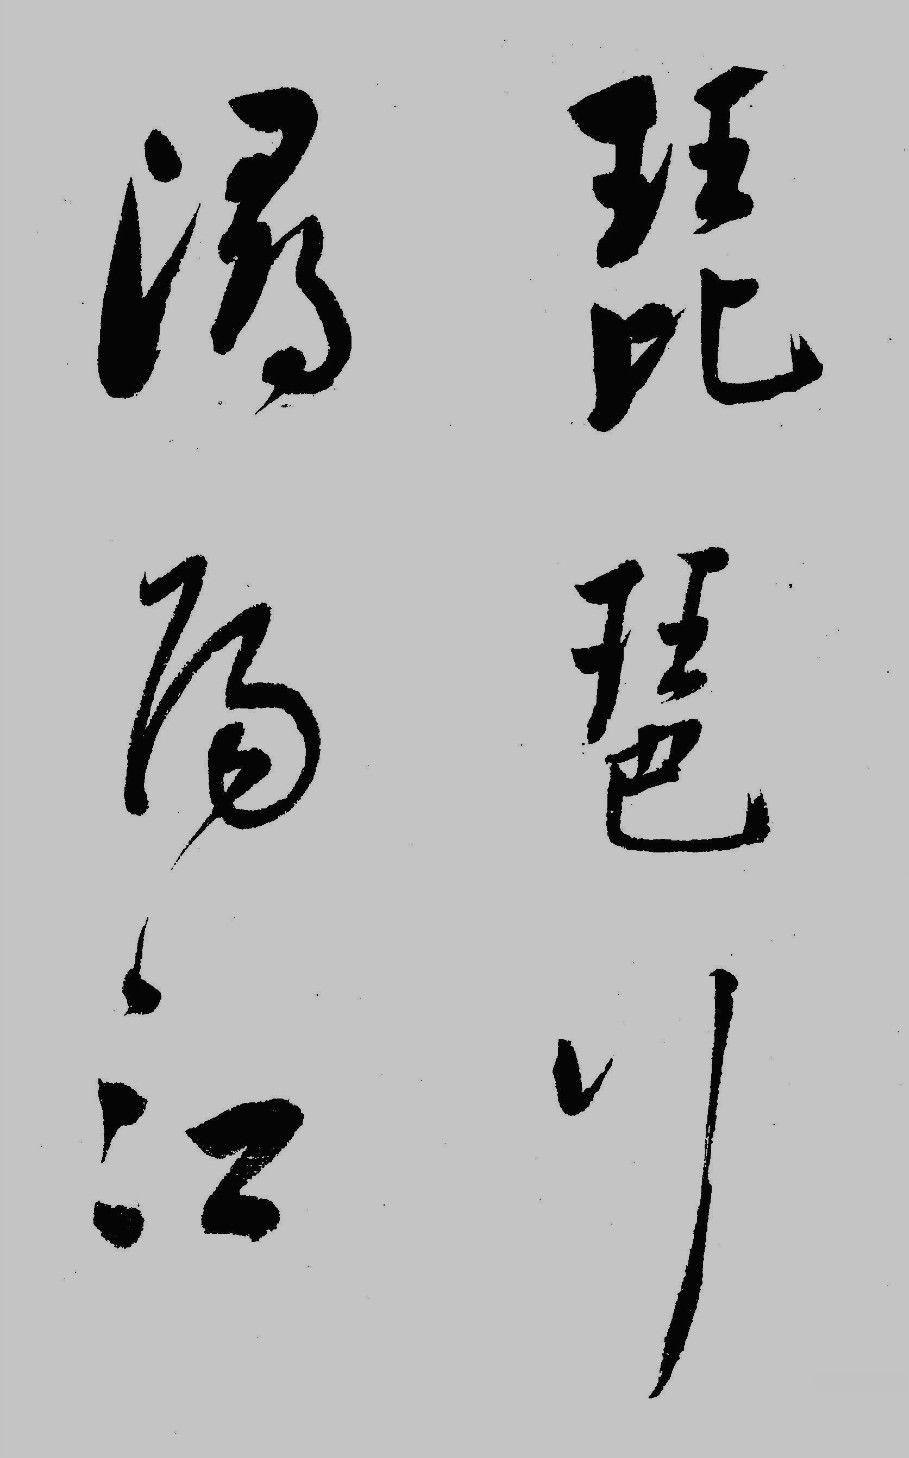 琵琶行
潯陽江